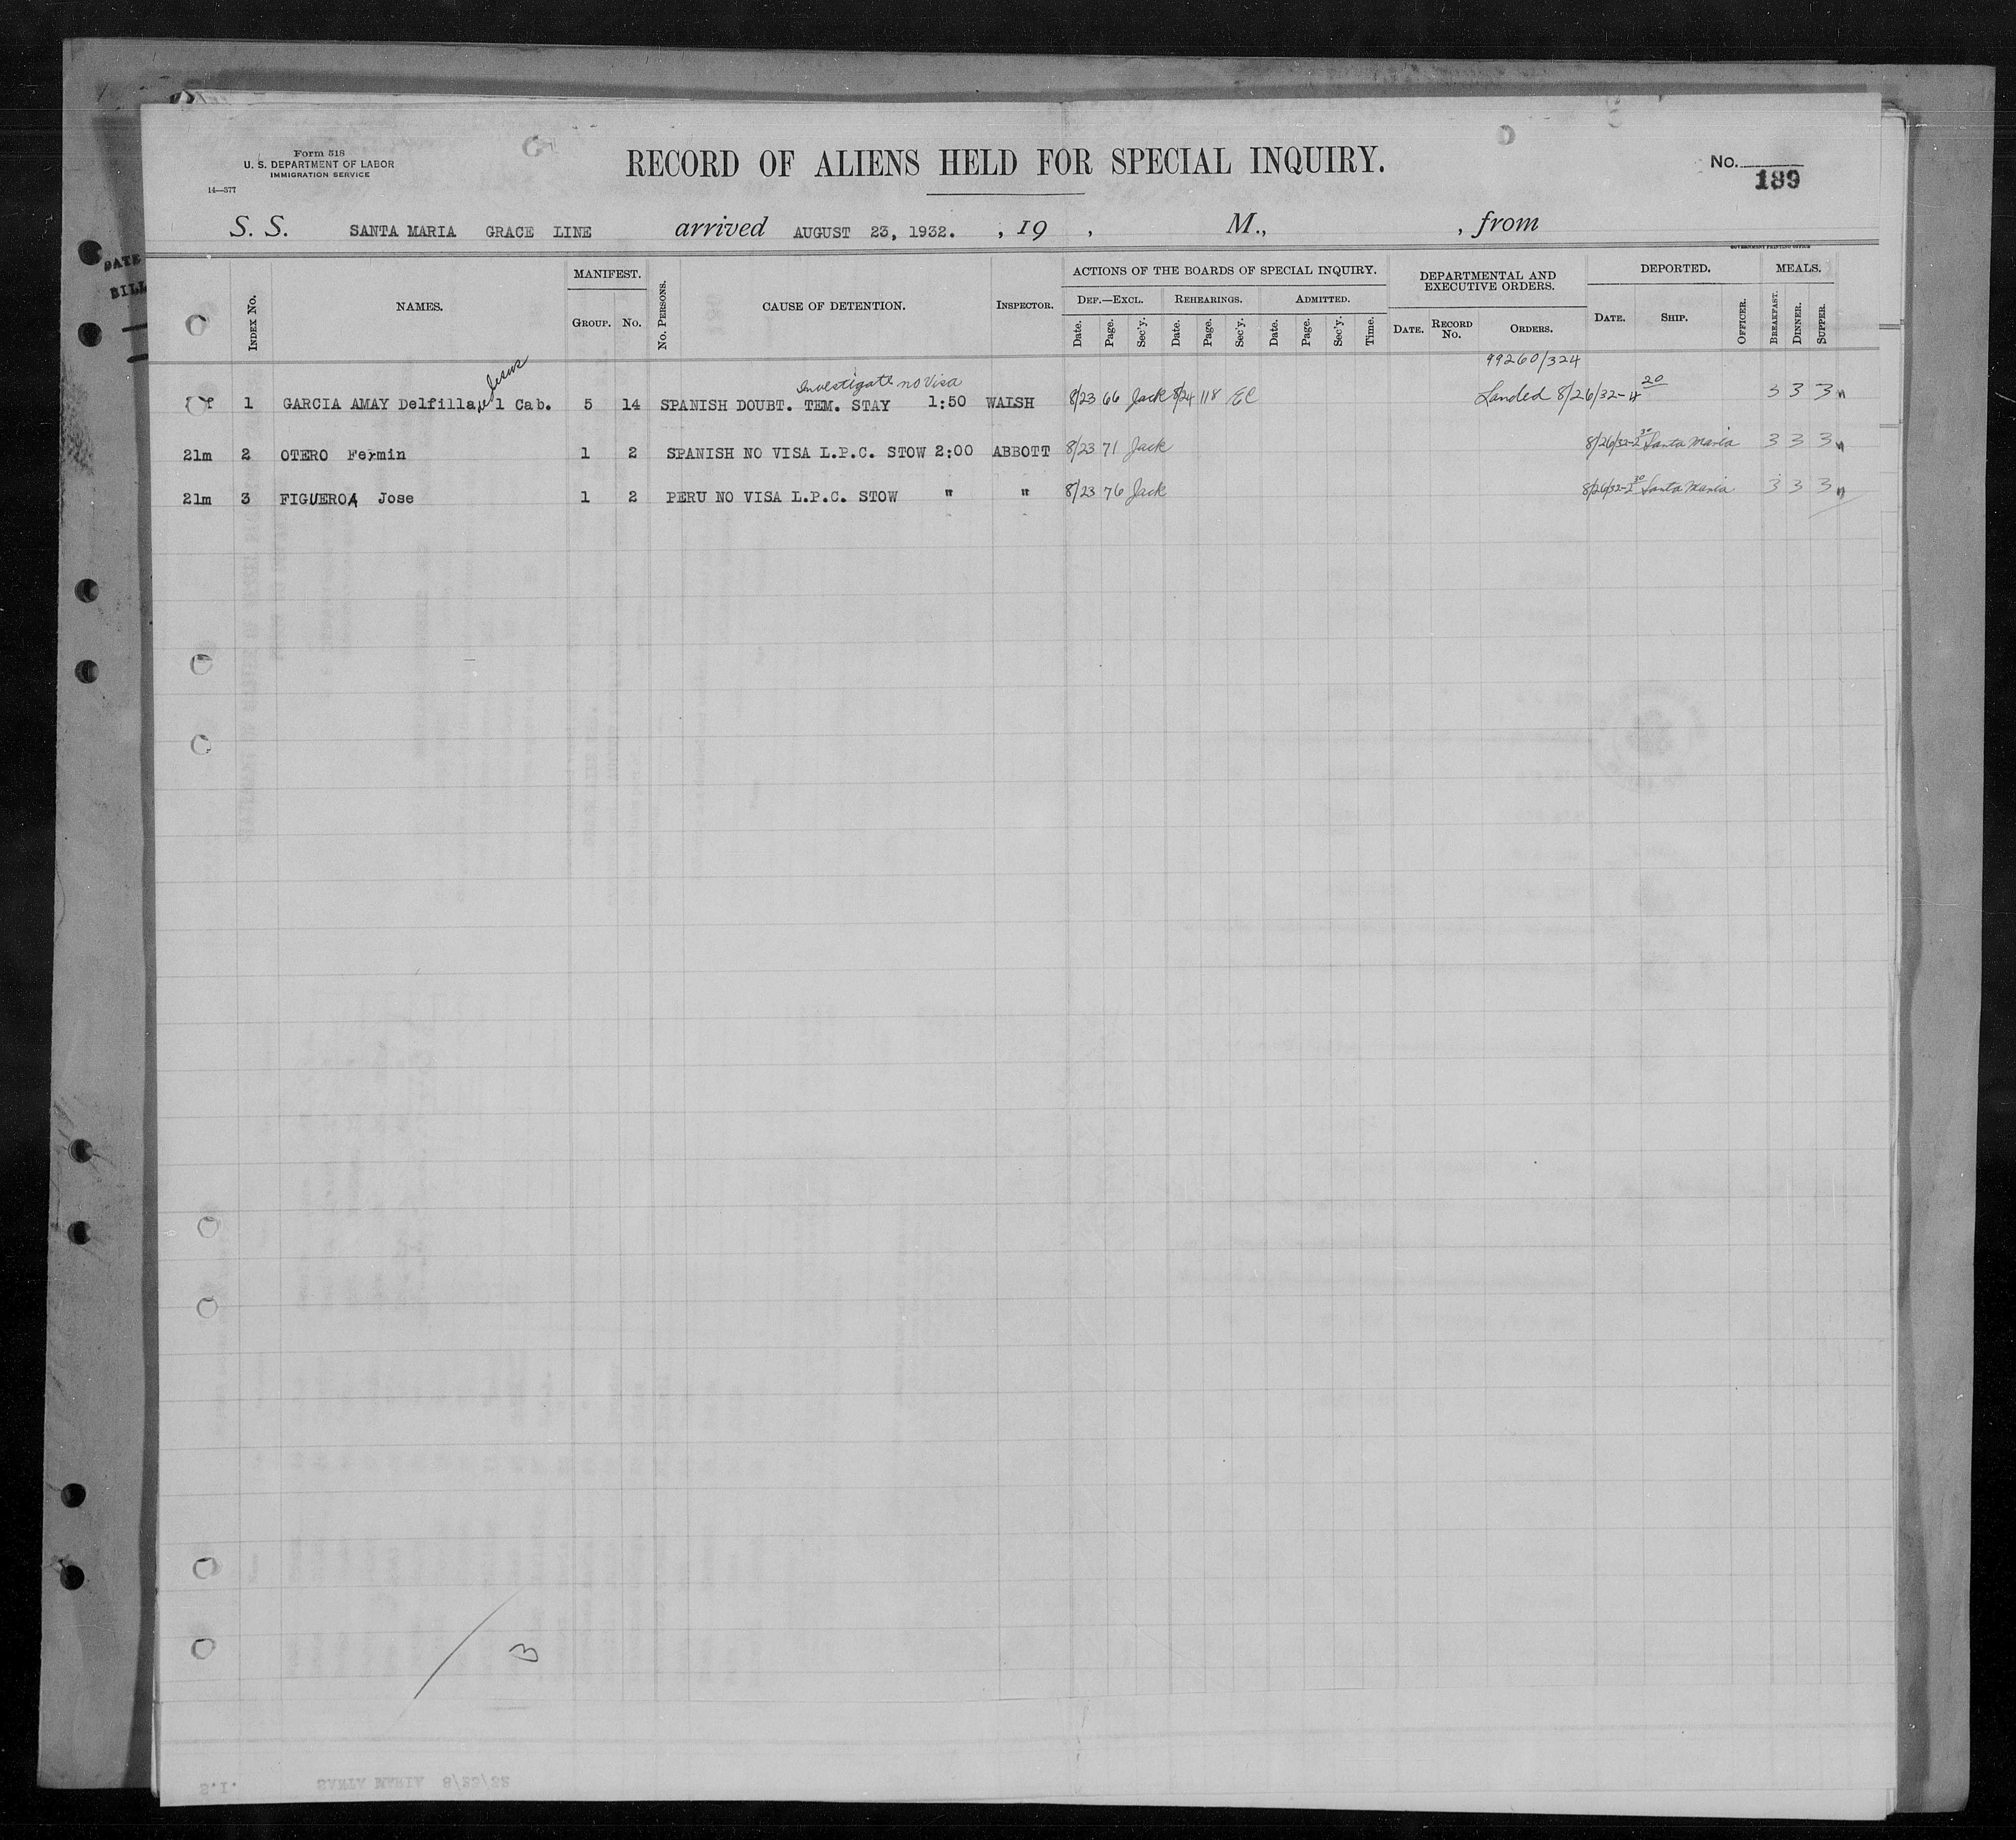 Form 518
U. S. DEPARTMENT OF LABOR
IMMIGRATION SERVICE
14—377
RECORD OF ALIENS HELD FOR SPECIAL INQUIRY.
No.
189
S. S. SANTA MARIA GRACE LINE arrived AUGUST 23, 1932. , 19 , M., , from
GOVERNMENT PRINTING OFFICE
DATE
BILL
INDEX No. NAMES. MANIFEST. GROUP. No. No. PERSONS. CAUSE OF DETENTION. INSPECTOR.
ACTIONS OF THE BOARDS OF SPECIAL INQUIRY.
DEF.—EXCL. REHEARINGS. ADMITTED.
Date. Page. Sec'y. Date. Page. Sec'y. Date. Page. Sec'y. Time.
DEPARTMENTAL AND EXECUTIVE ORDERS.
DATE. RECORD No. ORDERS.
DEPORTED.
DATE. SHIP. OFFICER.
MEALS.
BREAKFAST. DINNER. SUPPER.
99260/324
Jesus
Investigate no Visa
1 GARCIA AMAY Delfilla 1 Cab. 5 14 SPANISH DOUBT. TEM. STAY 1:50 WALSH 8/23 66 Jack 8/24 118 EC Landed 8/26/32-4 20 3 3 3 n
21m 2 OTERO Fermin 1 2 SPANISH NO VISA L.P.C. STOW 2:00 ABBOTT 8/23 71 Jack 8/26/32-2 30 Santa Maria 3 3 3 n
21m 3 FIGUEROA Jose 1 2 PERU NO VISA L.P.C. STOW " " 8/23 76 Jack 8/26/32-2 30 Santa Maria 3 3 3 n
3
S.I. SANTA MARIA 8/23/32